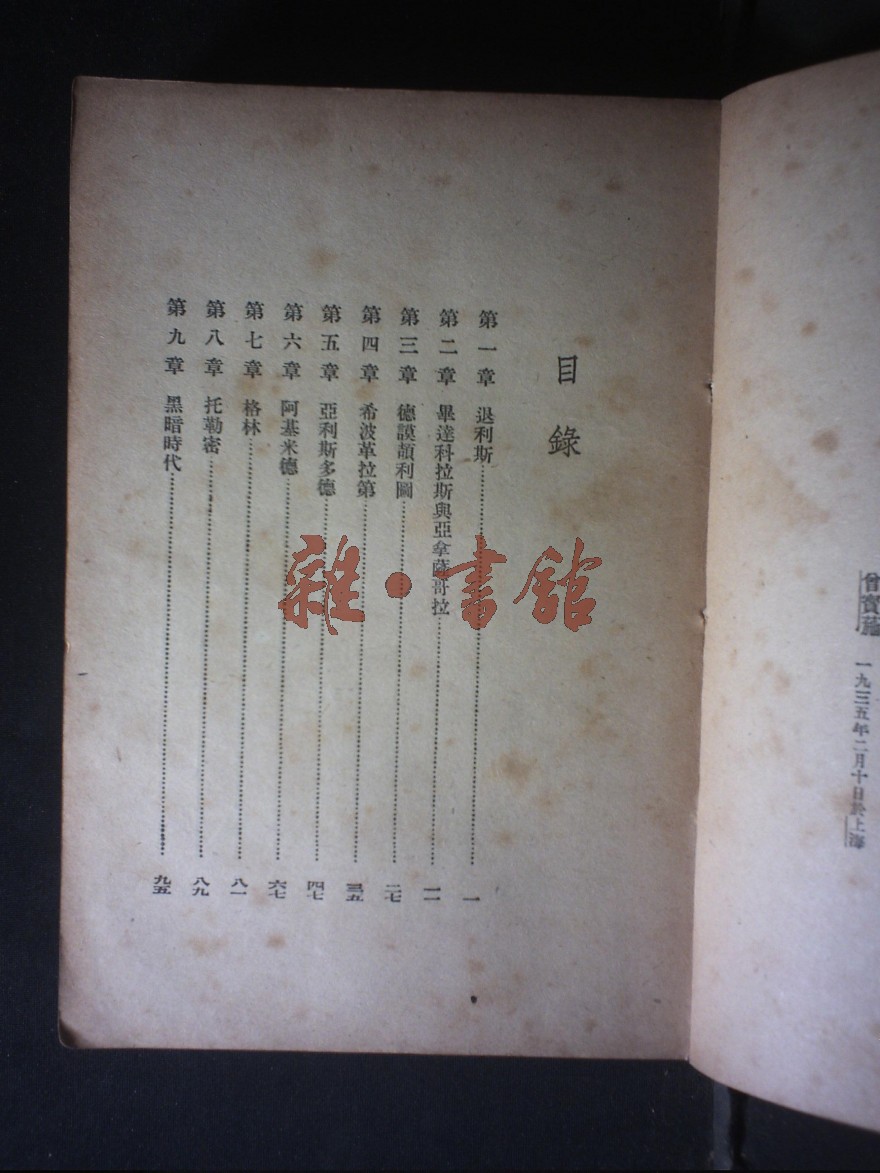 一九三五年二月十日於上海
目錄
第一章 退利斯……一
第二章 畢達科拉斯與亞拿薩哥拉……一一
第三章 德謨頡利圖……二七
第四章 希波革拉第……三五
第五章 亞利斯多德……四七
第六章 阿基米德……六七
第七章 格林……八一
第八章 托勒密……八九
第九章 黑暗時代……九五
雜·書館